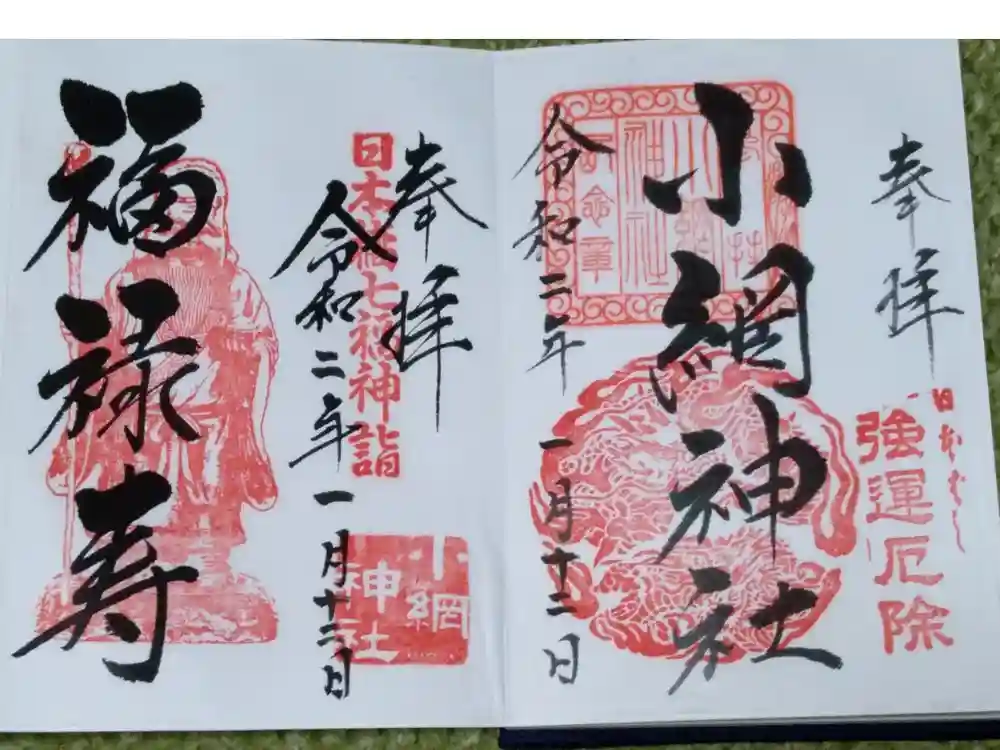 奉拝
日本橋
強運厄除
小網神社
令和二年一月十二日
奉拝
日本橋七福神詣
小網
神社
令和二年一月十二日
福禄寿